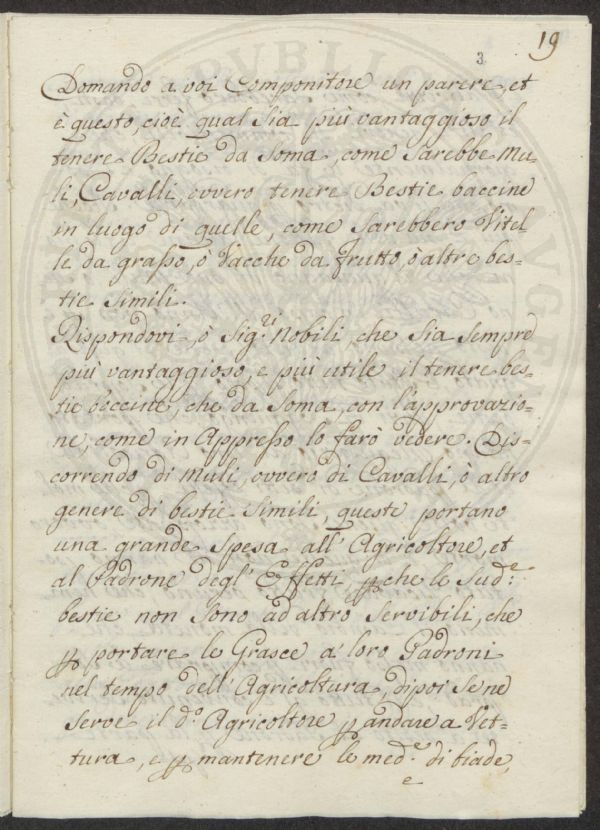 19
3
Domando a voi Componitore un parere, et
è questo, cioè qual Sia più vantaggioso il
tenere Bestie da Soma, come Sarebbe Mu-
li, Cavalli, ovvero tenere Bestie baccine
in luogo di quelle, come Sarebbero Vitel-
le da grasso, ò Vacche da frutto, ò altre bes-
tie Simili.
Rispondovi, ò Sig.ri Nobili, che Sia Sempre
più vantaggioso, e più utile il tenere bes-
tie boccine, che da Soma, con l'approvazio-
ne, come in Appresso lo farò vedere. Dis-
correndo di Muli, ovvero di Cavalli, ò altro
genere di bestie Simili, queste portano
una grande Spesa all'Agricoltore, et
al Padrone degl'Effetti p che le Sud.e
bestie non Sono ad altro Servibili, che
p portare le Grasce a' loro Padroni
nel tempo dell'Agricoltura, dipoi Se ne
Serve il d.o Agricoltore p andare a Vet-
tura, e p mantenere le med.e di biade,
e